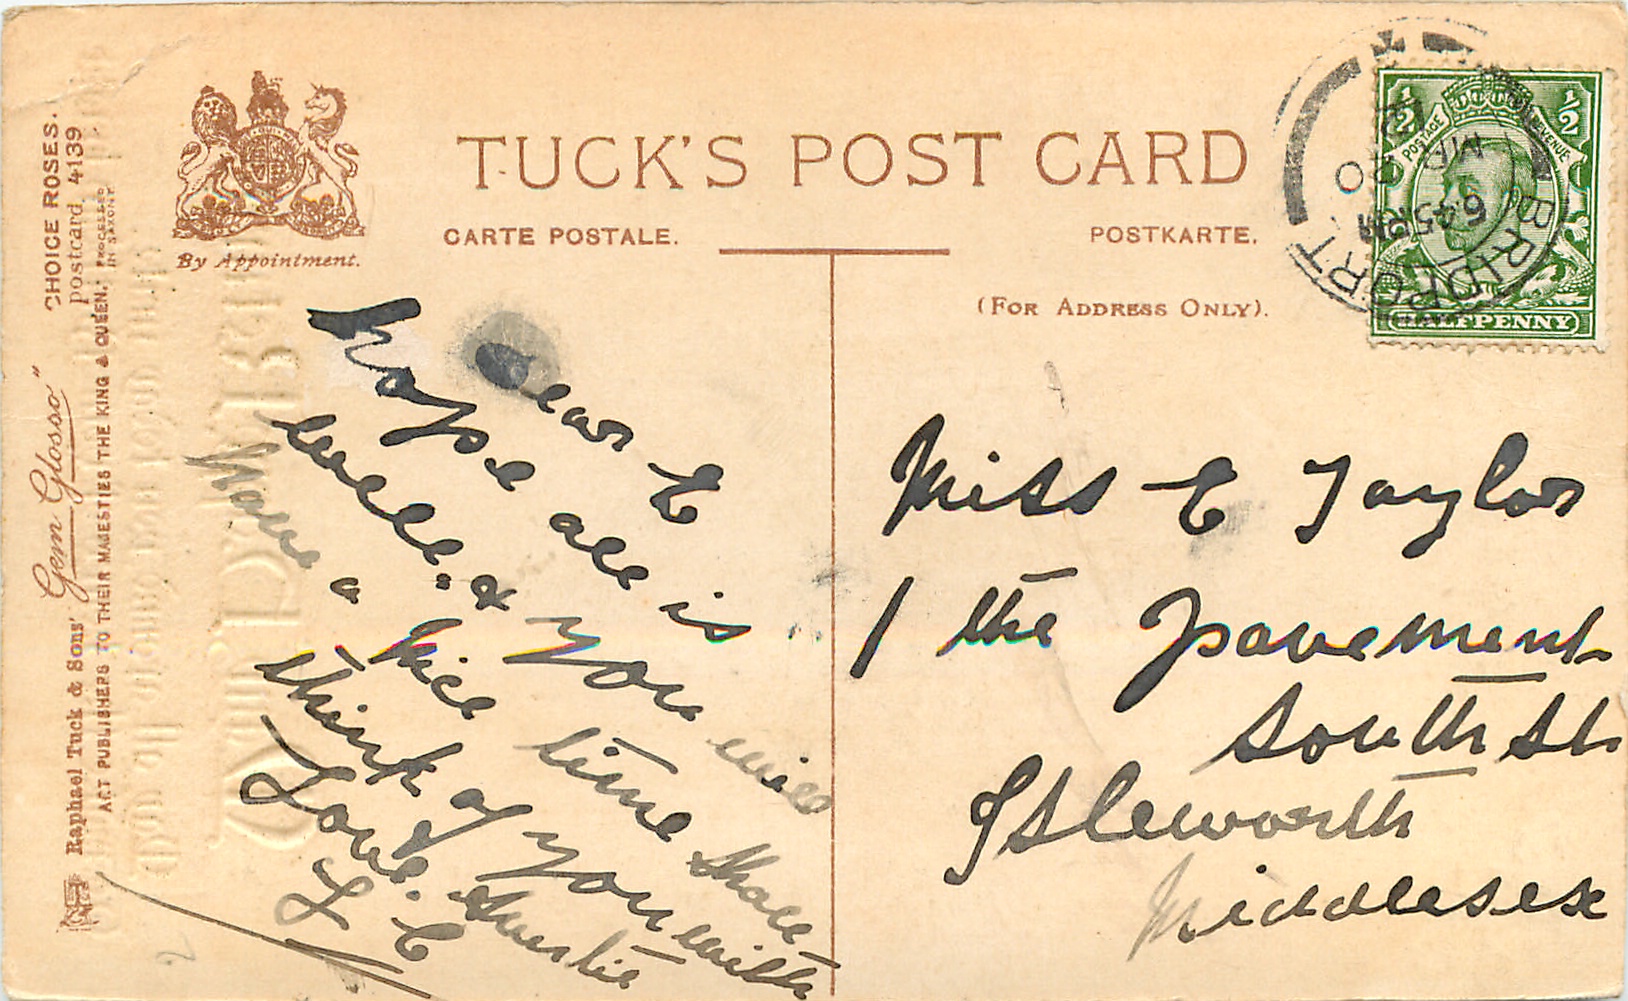 TUCK'S POST CARD
CARTE POSTALE.
POSTKARTE.
(FOR ADDRESS ONLY).
By Appointment.
CHOICE ROSES.
postcard. 4139
PROCESSED IN SAXONY.
Raphael Tuck & Sons' "Gem Glosso"
ART PUBLISHERS TO THEIR MAJESTIES THE KING & QUEEN.
Dear E
hope all is
well. & you will
have a nice time shall
think of you with
Love. & Auntie
L. C
Miss E Taylor
1 the Pavement
South St
Isleworth
Middlesex
½ ½
POSTAGE REVENUE
HALFPENNY
BRIDPORT
6 45 PM
20